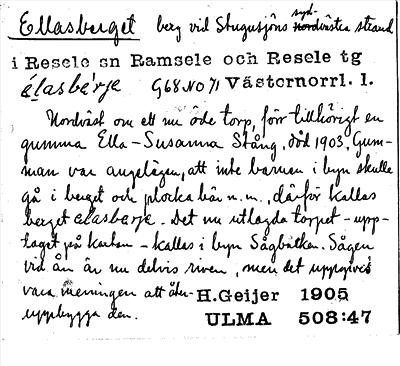 Ellasberget berg vid Stugusjöns syd-
Nordvästra strand
i Resele sn Ramsele och Resele tg
élasbèrje G68NO71 Västernorrl. l.
Nordväst om ett nu öde torp, förr tillhörigt en
gumma Ella-Susanna Stång, död 1903. Gum-
man var angelägen, att inte barnen i byn skulle
gå i berget och plocka bär n.m., därför kallas
berget élasbèrje. Det nu utlagda torpet - upp-
taget på kartan - kallas i byn Sågbäcken. Sågen
vid ån är nu delvis riven, men det uppgives
vara meningen att åter- H.Geijer 1905
uppbygga den. ULMA 508:47